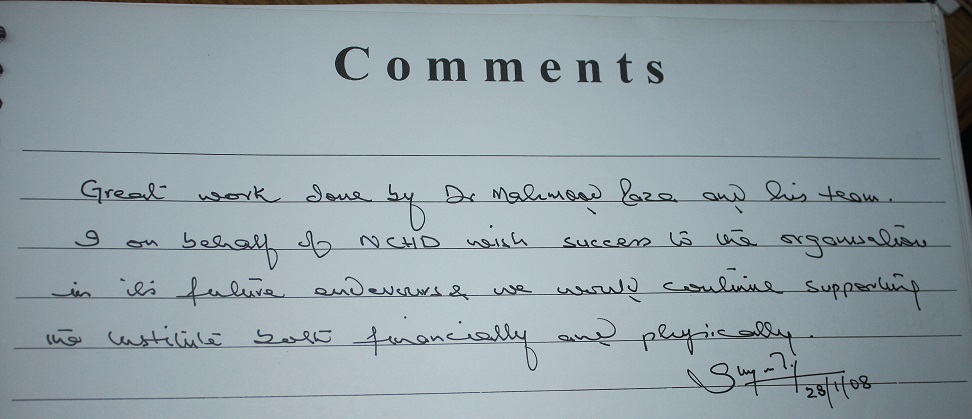 Comments
Great work done by Dr Mahmood Raza and his team.
I on behalf of NCHD wish success to the organisation
in its future endevours & we would continue supporting
the institute both financially and physically.
28/1/08